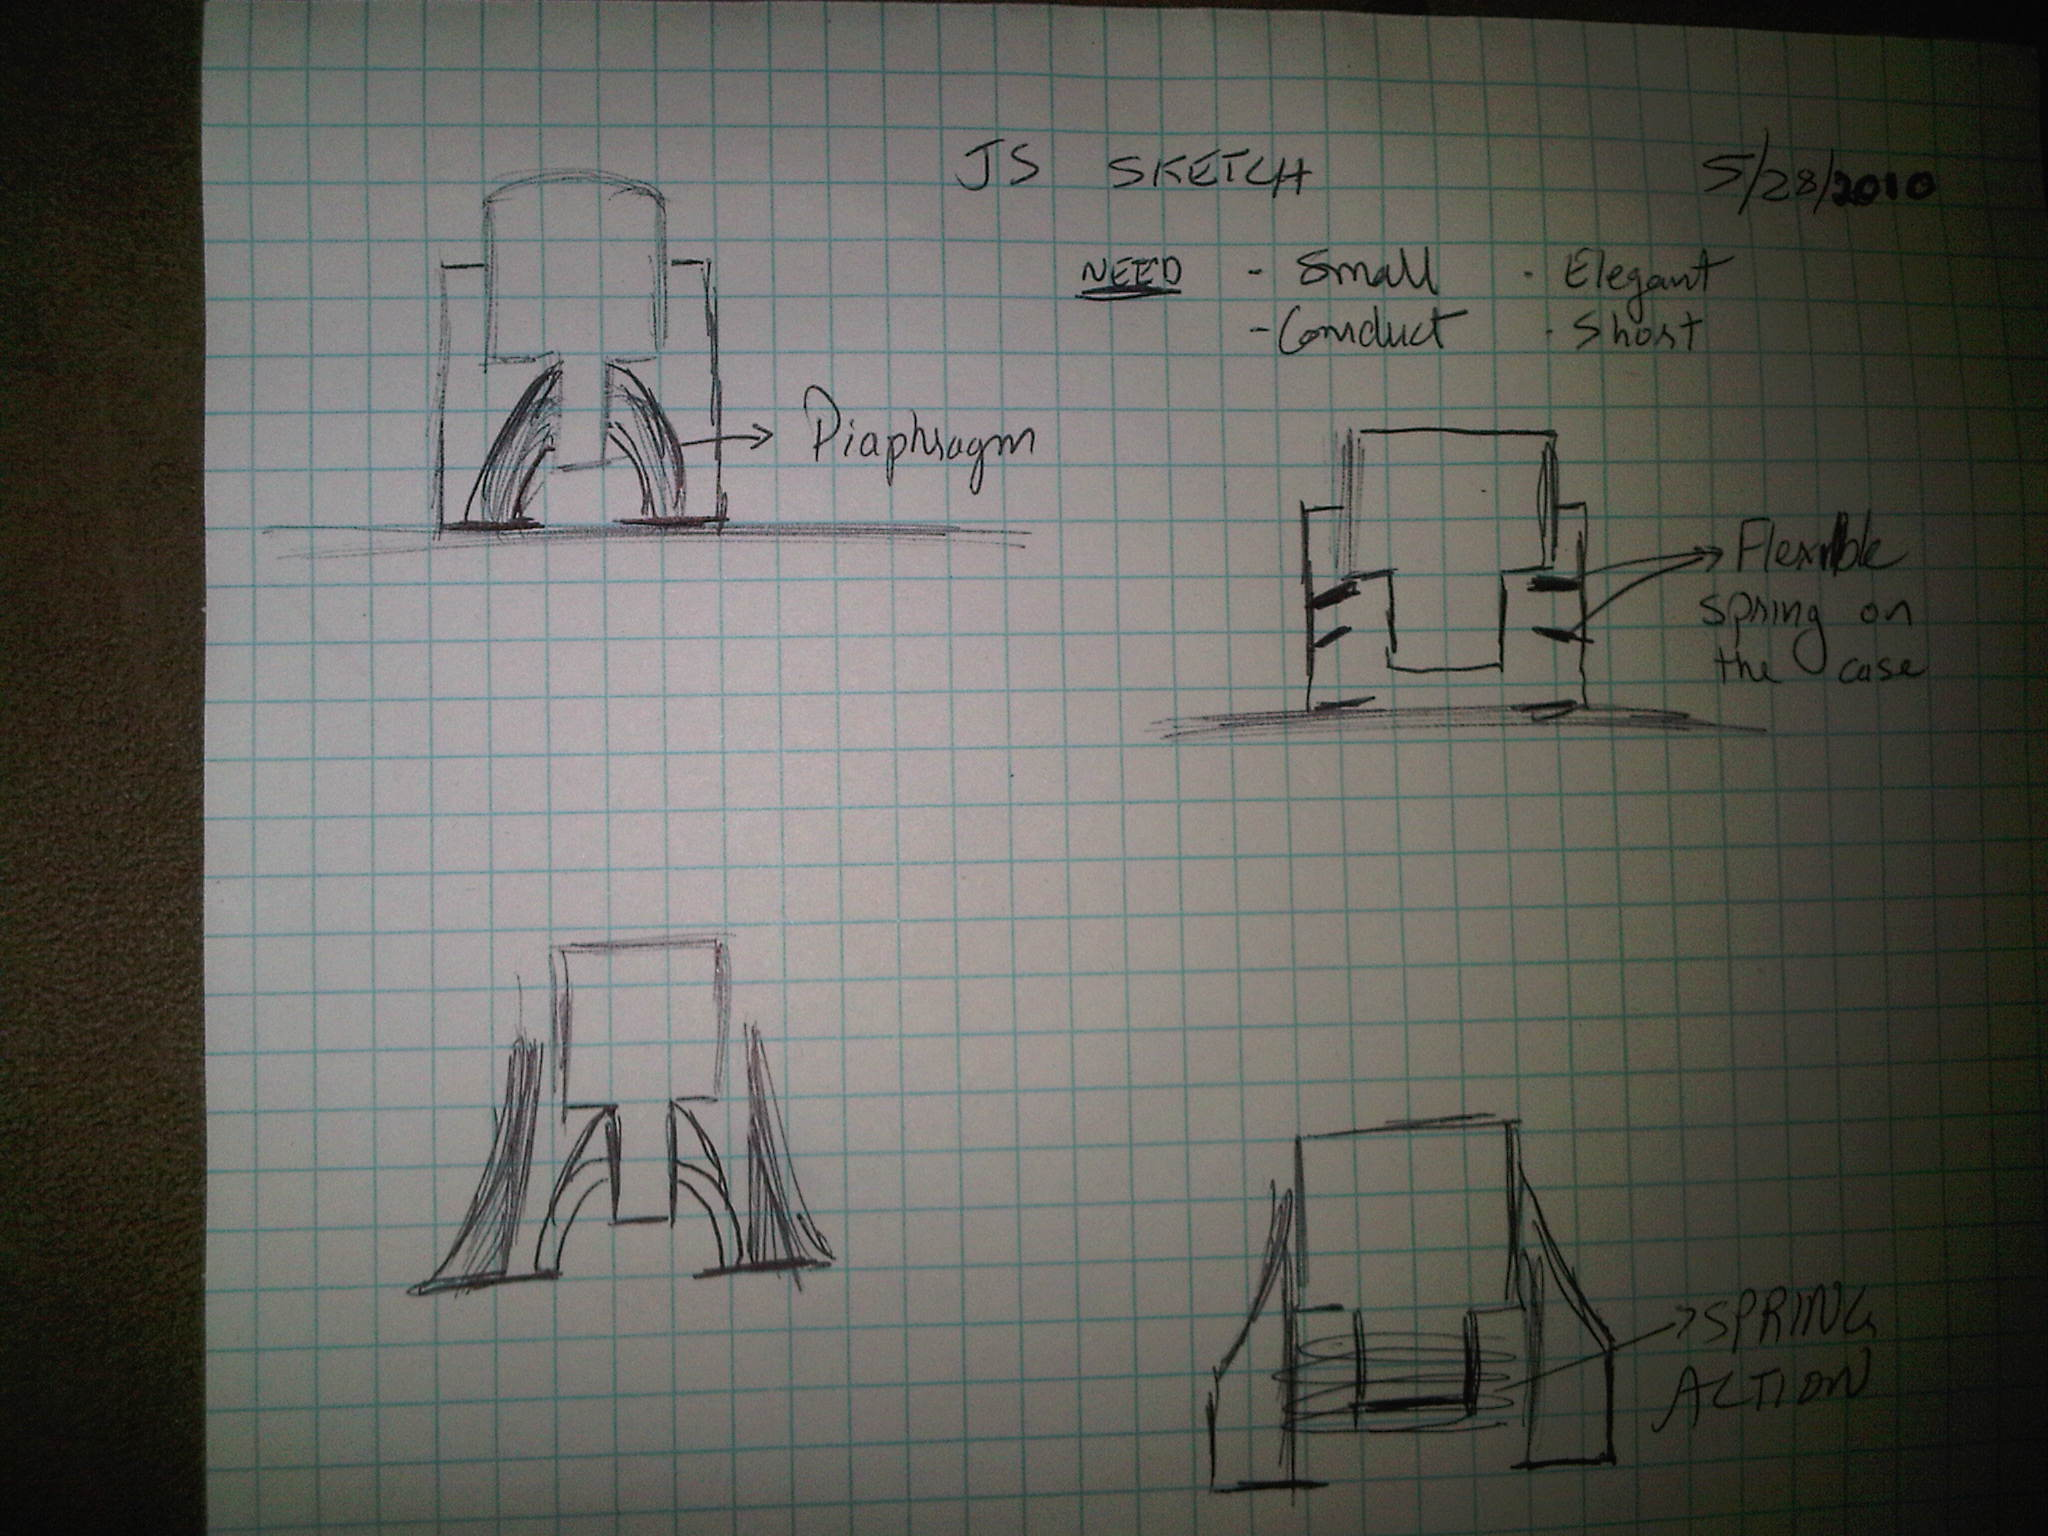 JS SKETCH 5/28/2010
NEED - Small · Elegant
- Conduct · Short
Diaphragm
Flexible
spring on
the case
SPRING
ACTION